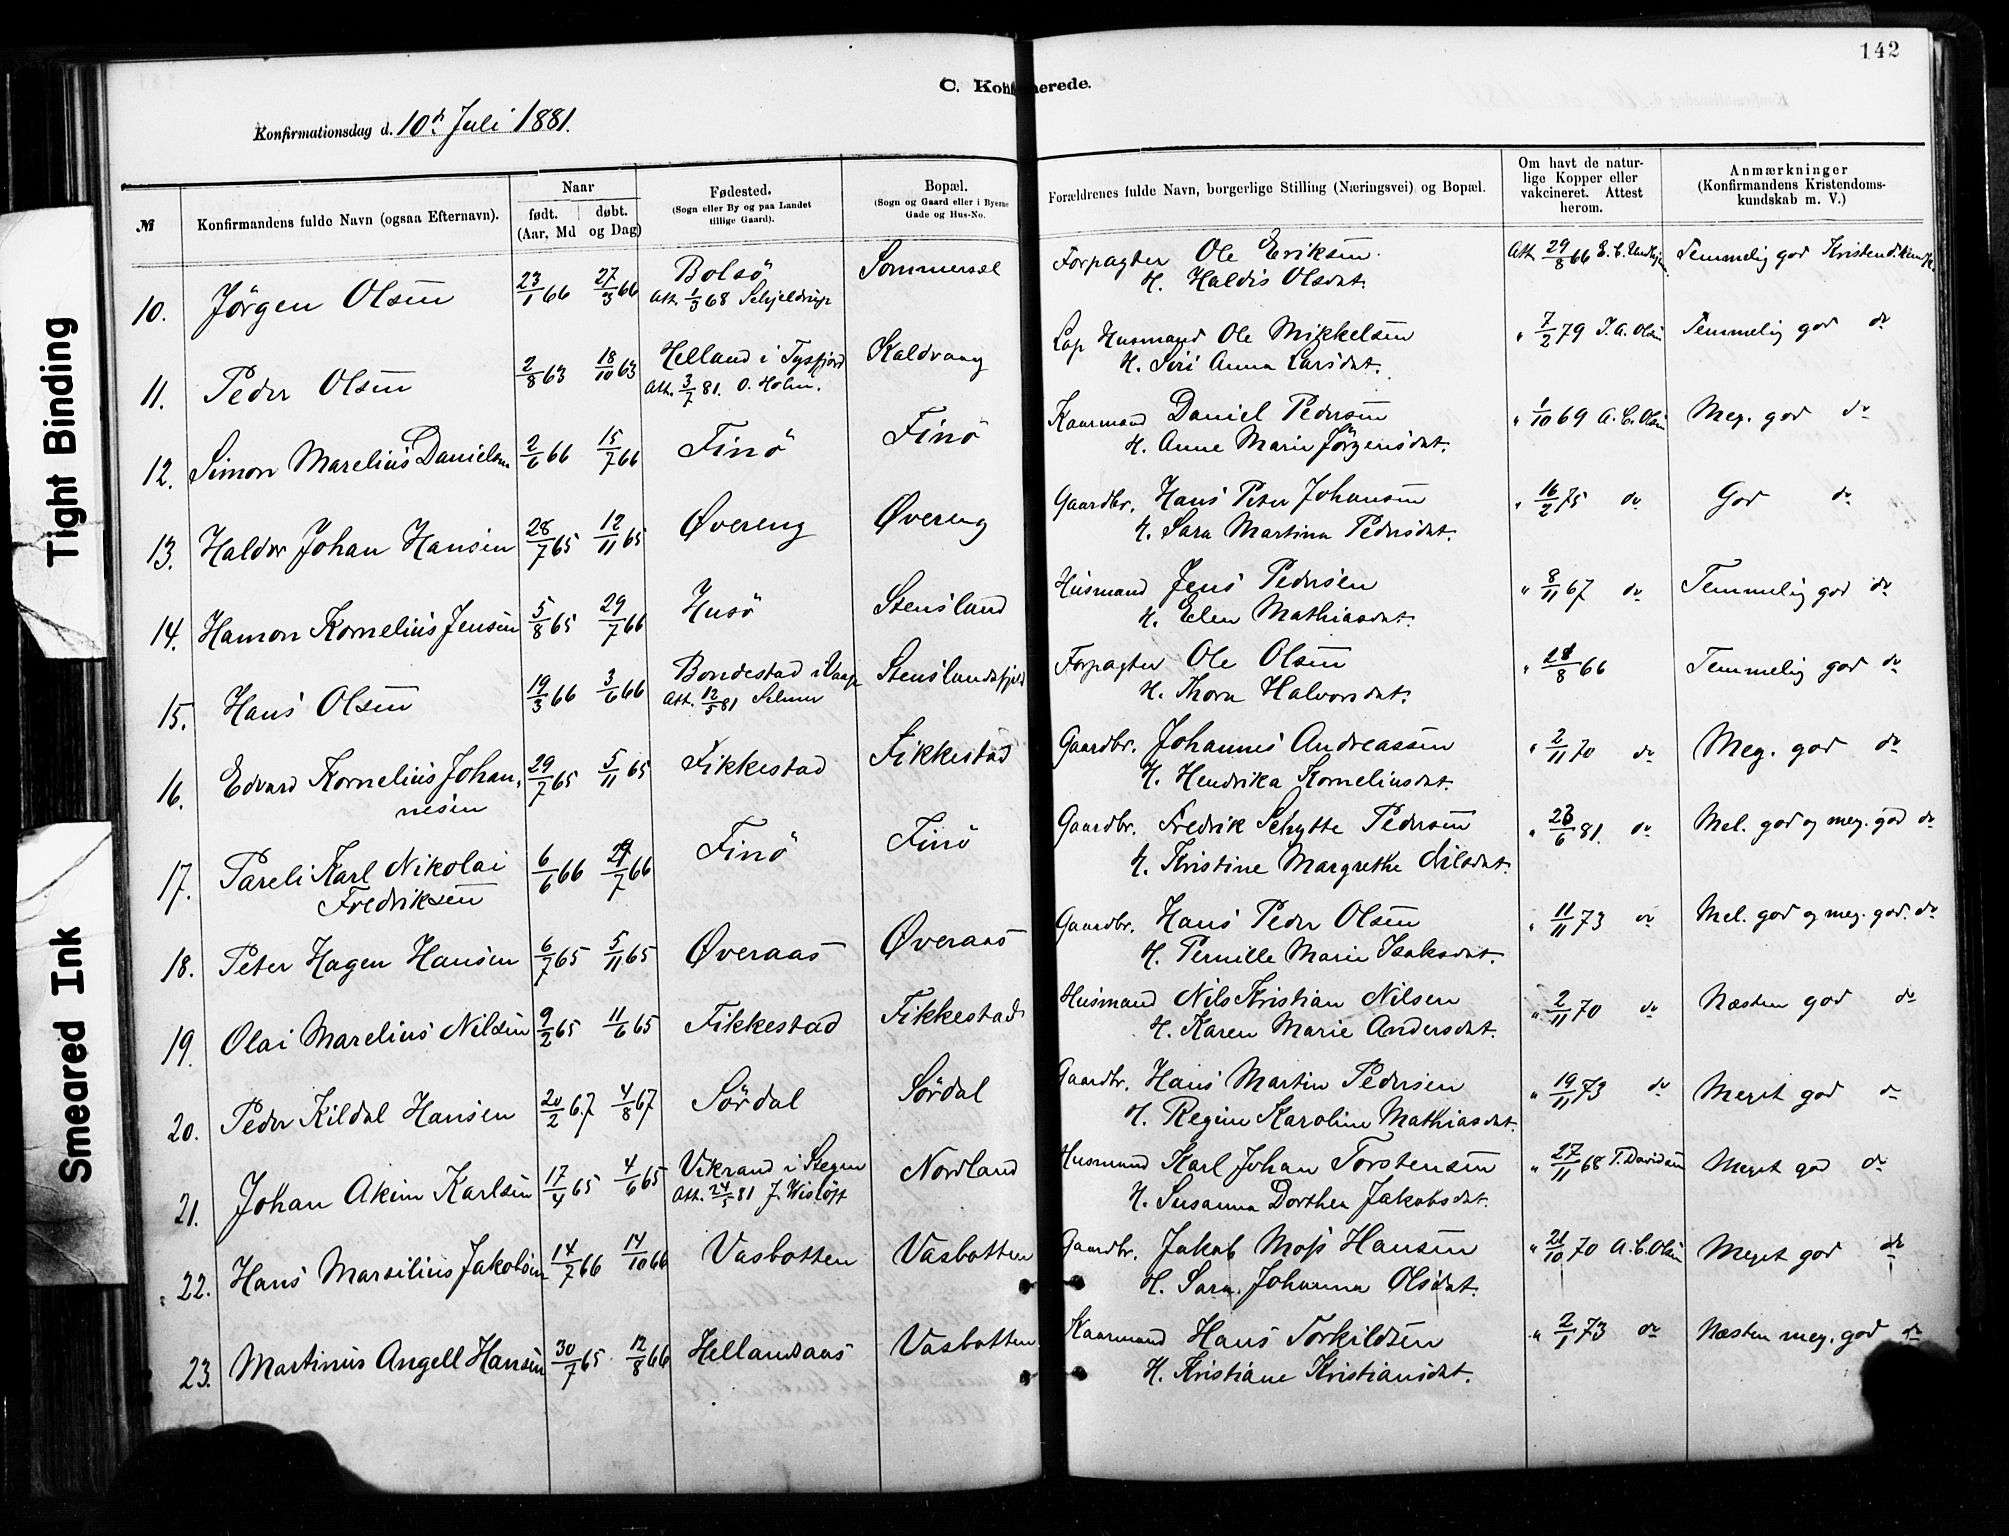 142
C. Konfirmerede.
Konfirmationsdag d. 10de Juli 1881.
Tight Binding
Smeared Ink
№
Konfirmandens fulde Navn (ogsaa Efternavn).
Naar
født. døbt.
(Aar, Md og Dag)
Fødested.
(Sogn eller By og paa Landet
tillige Gaard).
Bopæl.
(Sogn og Gaard eller i Byerne
Gade og Hus-No.
Forældrenes fulde Navn, borgerlige Stilling (Næringsvei) og Bopæl.
Om havt de natur-
lige Kopper eller
vakcineret. Attest
herom.
Anmærkninger
(Konfirmandens Kristendoms-
kundskab m. V.)
10. Jörgen Olsen 23/1 66 27/3 66 Bolsö Sommersel Forpagter Ole Eriksen Att. 29/8 66 Temmelig god
Att. 1/3 68 Schjeldrup H. Haldis Olsdat.
11. Peder Olsen 2/8 63 18/10 63 Helland i Tysfjord Kaldvaag Lap Husmand Ole Mikkelsen " 7/2 79 T. A. Olsen Temmelig god do
Att. 3/7 81. O. Holm. H. Siri Anna Larsdat.
12. Simon Marelius Danielsen 2/6 66 15/7 66 Finö Finö Kaarmand Daniel Pedersen " 1/10 69 A. C. Olsen Meg. god do
H. Anne Marie Jörgensdat.
13. Haldor Johan Hansen 28/7 65 12/11 65 Övereng Övereng Gaardbr. Hans Peter Johansen " 16/2 75 do God do
H. Sara Martina Pedersdat.
14. Hamon Kornelius Jensen 5/8 65 29/7 66 Husö Stensland Husmand Jens Pedersen " 8/11 67 do Temmelig god do
H. Elen Mathiasdat.
15. Hans Olsen 19/3 66 3/6 66 Bondestad i Vaage Stenslandsfjeld Forpagter Ole Olsen " 28/8 66 Temmelig god do
Att. 12/5 81 Selmer H. Thora Halvorsdat.
16. Edvard Kornelius Johan- 29/7 65 5/11 65 Fikkestad Fikkestad Gaardbr. Johannes Andreassen " 2/11 70 do Meg. god do
nesen H. Hendrika Korneliusdat.
17. Pareli Karl Nikolai 6/6 66 29/7 66 Finö Finö Gaardbr. Fredrik Schytte Pedersen " 26/6 81. do Mel. god og meg. god do
Fredriksen H. Kristine Margrethe Nilsdat.
18. Peter Hagen Hansen 6/7 65 5/11 65 Överaas Överaas Gaardbr. Hans Peder Olsen " 11/11 73 do Mel. god og meg. god. do
H. Pernille Marie Isaksdat.
19. Olai Marelius Nilsen 9/2 65 11/6 65 Fikkestad Fikkestad Husmand Nils Kristian Nilsen " 2/11 70 do Næsten god do
H. Karen Marie Andersdat.
20. Peder Kildal Hansen 20/2 67 4/8 67 Sördal Sördal Gaardbr. Hans Martin Pedersen " 19/11 73 do Meget god do
H. Regine Karoline Mathiasdat.
21. Johan Akim Karlsen 17/4 65 4/6 65 Vikrand i Stegen Nordland Husmand Karl Johan Torstensen " 27/11 68 T. Davidsen Meget god do
Att. 24/5 81 J. Wislöff H. Susanna Dorthea Jakobsdat.
22. Hans Marsilius Jakobsen 14/7 66 14/10 66 Vasbotten Vasbotten Gaardbr. Jakob Moss Hansen " 21/10 70 A. C. Olsen Meget god do
H. Sara Johanna Olsdat.
23. Martinus Angell Hansen 30/7 65 12/8 66 Hellandsaas Vasbotten Kaarmand Hans Torkildsen " 2/1 73 do Næsten meg. god do
H. Kristiane Kristiansdat.